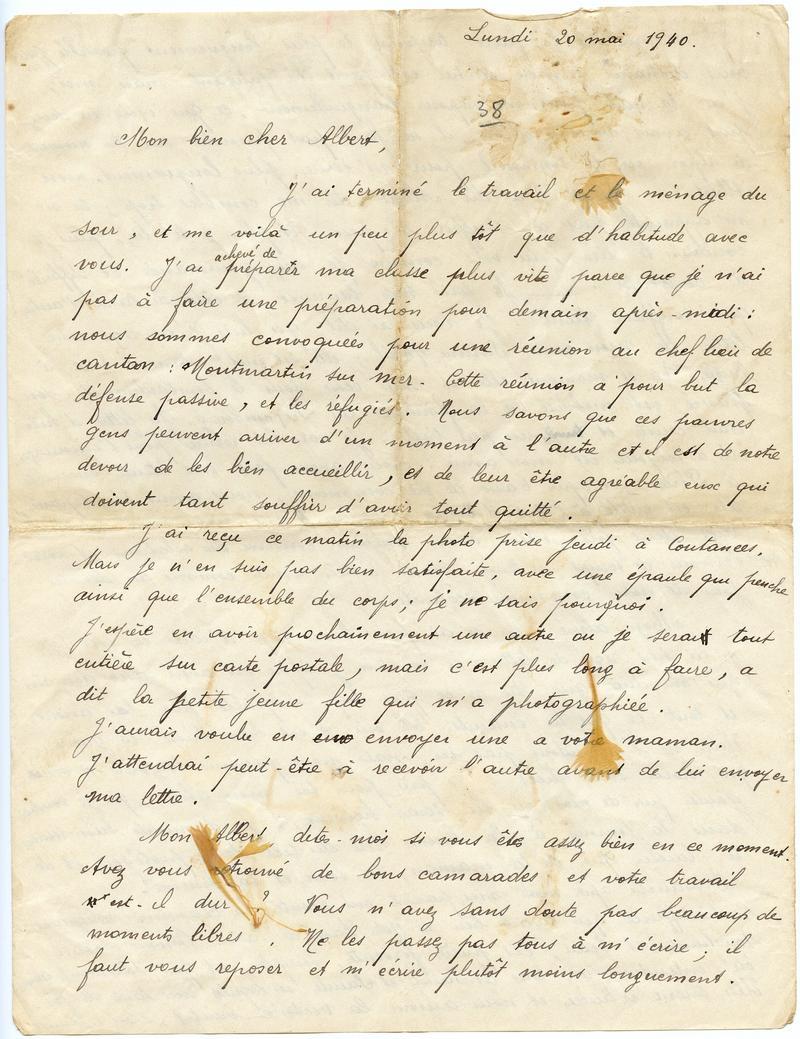 Lundi 20 mai 1940.
38
Mon bien cher Albert,
J'ai terminé le travail et le ménage du
soir, et me voilà un peu plus tôt que d'habitude avec
vous. J'ai achevé de préparer ma classe plus vite parce que je n'ai
pas à faire une préparation pour demain après-midi :
nous sommes convoquées pour une réunion au chef lieu de
canton : Montmartin sur mer. Cette réunion a pour but la
défense passive, et les réfugiés. Nous savons que ces pauvres
gens peuvent arriver d'un moment à l'autre et il est de notre
devoir de les bien accueillir, et de leur être agréable eux qui
doivent tant souffrir d'avoir tout quitté.
J'ai reçu ce matin la photo prise jeudi à Coutances.
Mais je n'en suis pas bien satisfaite, avec une épaule qui penche
ainsi que l'ensemble du corps ; je ne sais pourquoi.
J'espère en avoir prochainement une autre ou je serait tout
entière sur carte postale, mais c'est plus long à faire, a
dit la petite jeune fille qui m'a photographiée.
J'aurais voulu en envoyer une a votre maman.
J'attendrai peut-être à recevoir l'autre avant de lui envoyer
ma lettre.
Mon Albert dites-moi si vous êtes assez bien en ce moment.
Avez vous retrouvé de bons camarades et votre travail
n'est-il dur ? Vous n'avez sans doute pas beaucoup de
moments libres. Ne les passez pas tous à m'écrire ; il
faut vous reposer et m'écrire plutôt moins longuement.